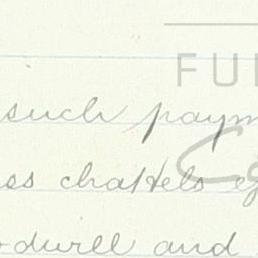 FU
such paym
ss chattels
dwell and